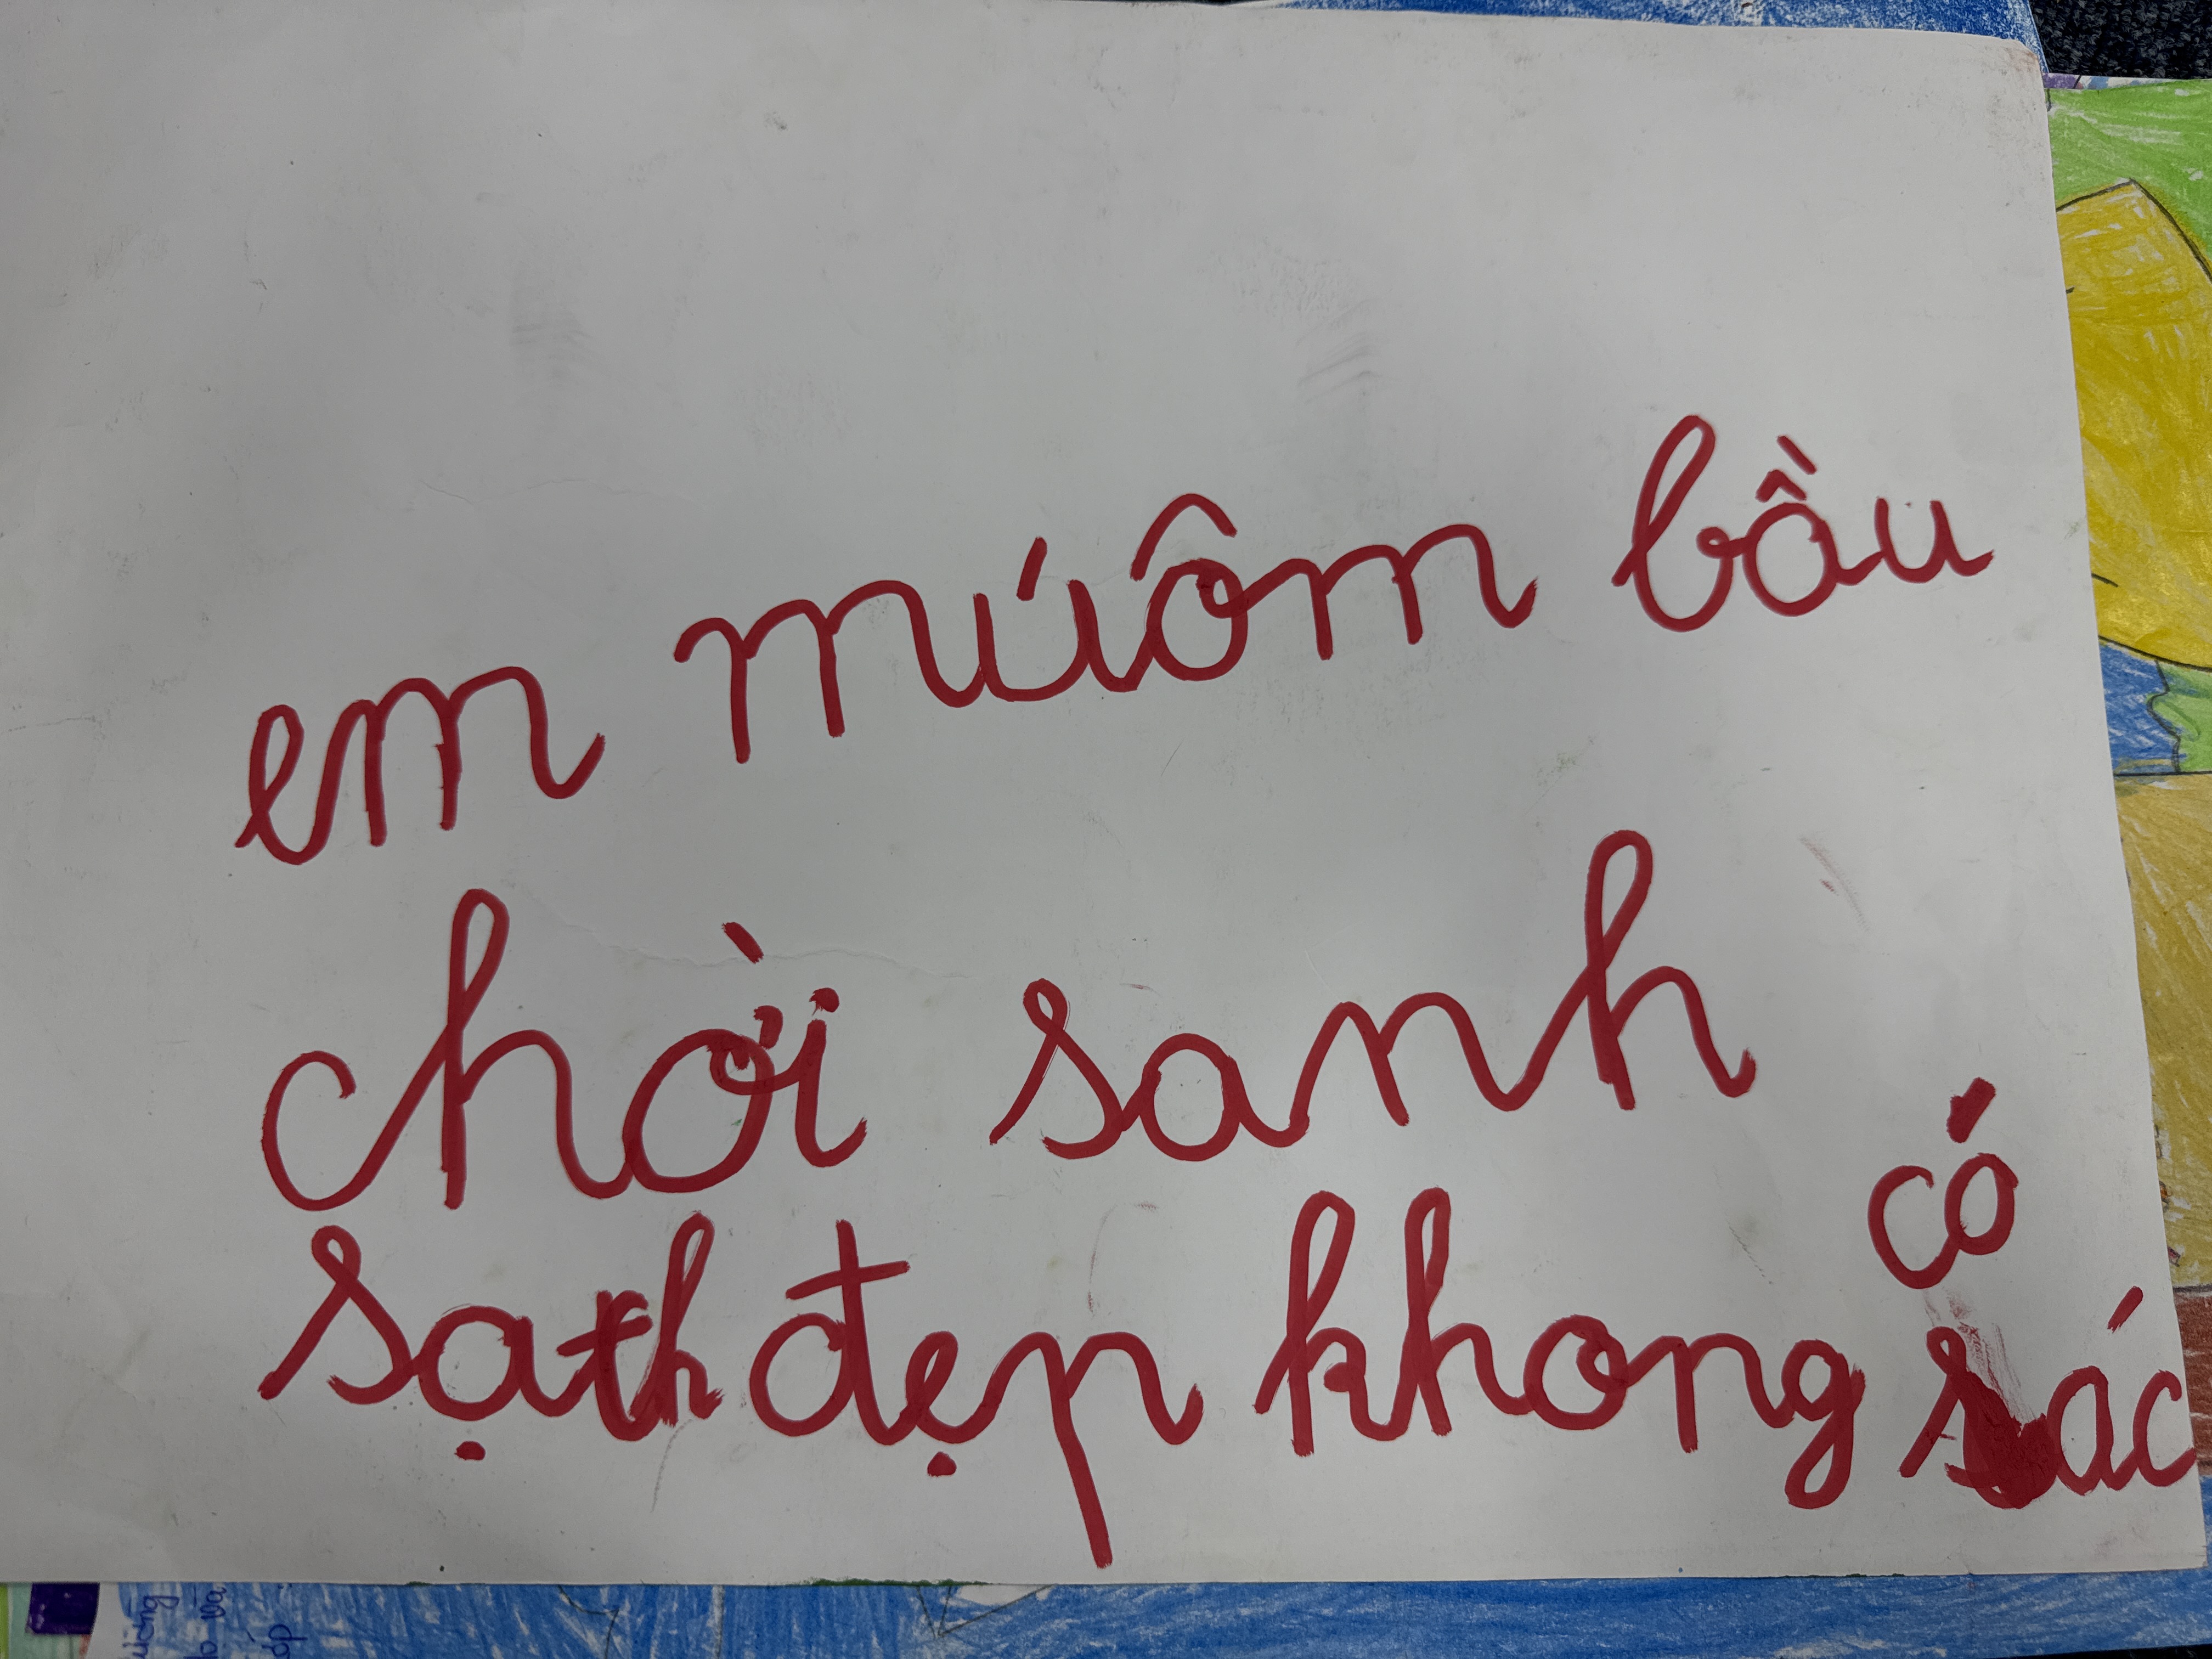 em múôm bầu
chời sanh
sạch đẹp không có
sác